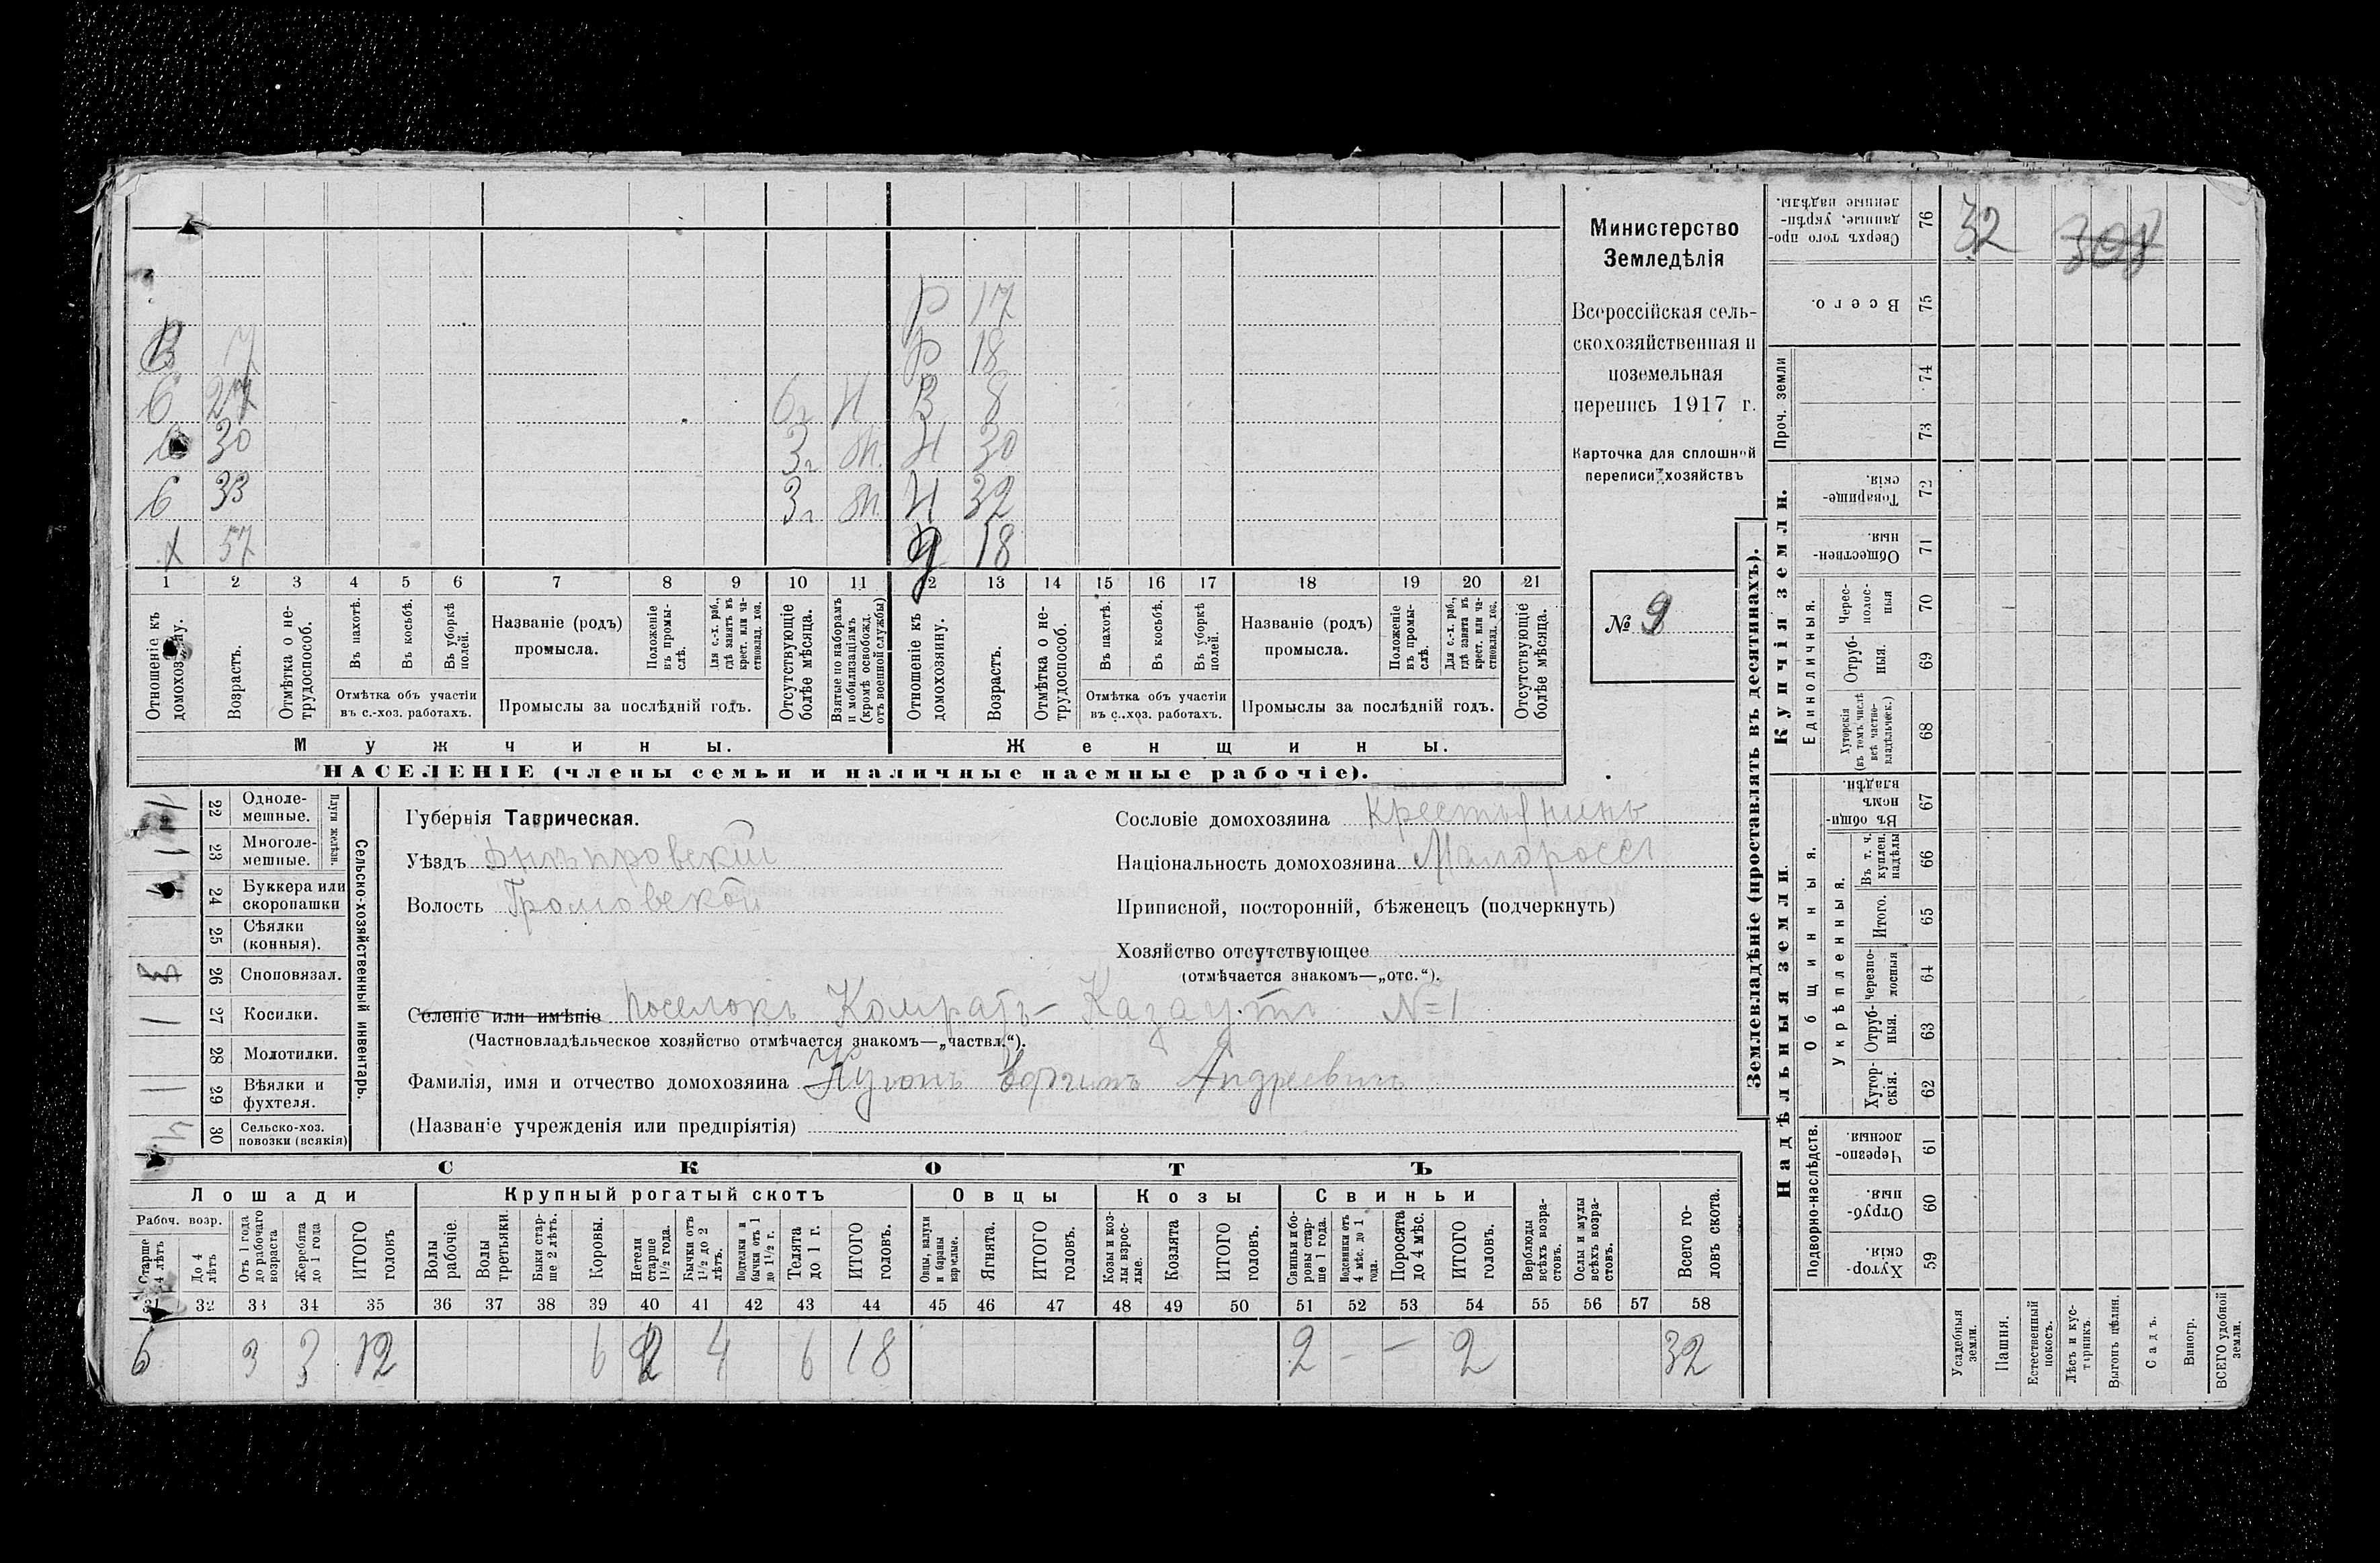 Министерство
Земледѣлія
Всероссійская сель-
скохозяйственная и
поземельная
перепись 1917 г.
Карточка для сплошной
переписи хозяйствъ
№ 9
Р 17
В 7 Р 18
С 27 6 г Н В 8
30 3 г Н 30
С 33 3 г Н 32
Х 57 18
1 2 3 4 5 6 7 8 9 10 11 12 13 14 15 16 17 18 19 20 21
Отношеніе къ домохозяину.
Возрастъ.
Отмѣтка о не-трудоспособ.
Въ пахотѣ.
Въ косьбѣ.
Въ уборкѣ полей.
Отмѣтка объ участіи
въ с.-хоз. работахъ.
Названіе (родъ)
промысла.
Положеніе въ промы-слѣ.
Для с.-х. раб., гдѣ занятъ въ крест. или ча-стновлад. хоз.
Промыслы за послѣдній годъ.
Отсутствующіе болѣе мѣсяца.
Взятые по наборамъ и мобилизаціямъ (кромѣ освобожд. отъ военной службы)
Отношеніе къ домохозяину.
Возрастъ.
Отмѣтка о не-трудоспособ.
Въ пахотѣ.
Въ косьбѣ.
Въ уборкѣ полей.
Отмѣтка объ участіи
въ с.-хоз. работахъ.
Названіе (родъ)
промысла.
Положеніе въ промы-слѣ.
Для с.-х. раб., гдѣ занята въ крест. или ча-стновлад. хос.
Промыслы за послѣдній годъ.
Отсутствующіе болѣе мѣсяца.
Мужчины.
Женщины.
НАСЕЛЕНІЕ (члены семьи и наличные наемные рабочіе).
22 Одноле-мешные.
1 23 Многоле-мешные.
Плуги желѣзн.
24 Буккера или скоропашки
25 Сѣялки (конныя).
26 Сноповязал.
1 27 Косилки.
28 Молотилки.
1 29 Вѣялки и фухтеля.
4 30 Сельско-хоз. повозки (всякія)
Сельско-хозяйственный инвентарь.
Губернія Таврическая.
Уѣздъ Днѣпровскій
Волость Громовской
Сословіе домохозяина Крестьянинъ
Національность домохозяина Малороссъ
Приписной, посторонній, бѣженецъ (подчеркнуть)
Хозяйство отсутствующее
(отмѣчается знакомъ—„отс.“).
Селеніе или имѣніе поселокъ Комратъ- №=1
(Частновладѣльческое хозяйство отмѣчается знакомъ—„частвл.“).
Фамилія, имя и отчество домохозяина Андреевичъ
(Названіе учрежденія или предпріятія)
СКОТЪ
Лошади
Крупный рогатый скотъ
Овцы
Козы
Свиньи
Рабоч. возр.
Старше 4 лѣтъ
До 4 лѣтъ
Отъ 1 года до рабочаго возраста
Жеребята до 1 года
ИТОГО головъ
Волы рабочіе.
Волы третьяки.
Быки стар-ше 2 лѣтъ.
Коровы.
Нетели старше 1 1/2 года.
Бычки отъ 1 1/2 до 2 лѣтъ.
Подтелки и бычки отъ 1 до 1 1/2 г.
Телята до 1 г.
ИТОГО головъ.
Овцы, валухи и бараны взрослые.
Ягнята.
ИТОГО головъ.
Козы и коз-лы взрос-лые.
Козлята
ИТОГО головъ.
Свиньи и бо-ровы стар-ше 1 года.
Подсвинки отъ 4 мѣс. до 1 года.
Поросята до 4 мѣс.
ИТОГО головъ.
Верблюды всѣхъ возра-стовъ.
Ослы и мулы всѣхъ возра-стовъ.
Всего го-ловъ скота.
31 32 33 34 35 36 37 38 39 40 41 42 43 44 45 46 47 48 49 50 51 52 53 54 55 56 57 58
6 3 3 12 6 2 4 6 18 2 - - 2 32
Землевладѣніе (проставлять въ десятинахъ).
Купчія земли.
Надѣльныя земли.
Сверхъ того про-данные, укрѣп-ленные надѣлы. 76 32 308
Всего. 75
Проч. земли 74
73
Товарище-скія. 72
Обществен-ныя. 71
Единоличныя.
Черес-полос-ныя 70
Отруб-ныя. 69
Хуторскія (въ томъ числѣ всѣ частно-владѣльческ.) 68
Общинныя.
Въ общи-номъ владѣн. 67
Укрѣпленныя.
Въ т. ч. куплен. надѣлы 66
Итого. 65
Черезпо-лосныя 64
Отруб-ныя. 63
Хутор-скія. 62
Подворно-наслѣдств.
Черезпо-лосныя. 61
Отруб-ныя. 60
Хутор-скія. 59
Усадебныя земли.
Пашня.
Естественный покосъ.
Лѣсъ и кус-тарникъ.
Выгонъ цѣлин.
Садъ.
Виногр.
ВСЕГО удобной земли.